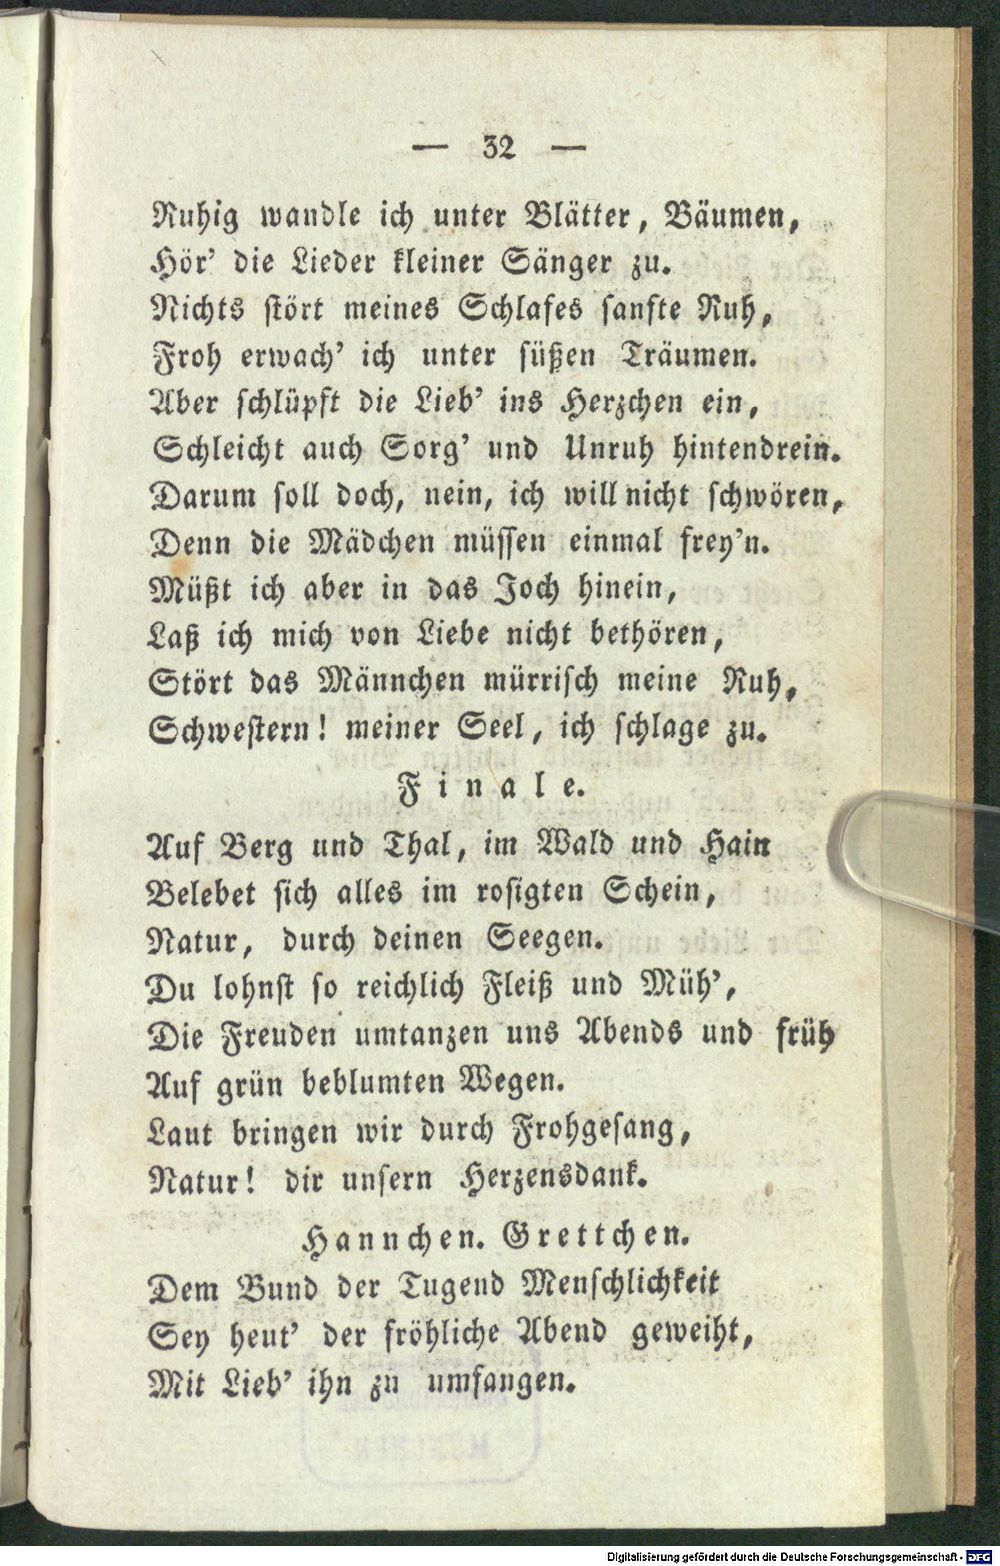 — 32 —
Ruhig wandle ich unter Blätter, Bäumen,
Hör' die Lieder kleiner Sänger zu.
Nichts stört meines Schlafes sanfte Ruh,
Froh erwach' ich unter süßen Träumen.
Aber schlüpft die Lieb' ins Herzchen ein,
Schleicht auch Sorg' und Unruh hintendrein.
Darum soll doch, nein, ich will nicht schwören,
Denn die Mädchen müssen einmal frey'n.
Müßt ich aber in das Joch hinein,
Laß ich mich von Liebe nicht bethören,
Stört das Männchen mürrisch meine Ruh,
Schwestern! meiner Seel, ich schlage zu.
Finale.
Auf Berg und Thal, im Wald und Hain
Belebet sich alles im rosigten Schein,
Natur, durch deinen Seegen.
Du lohnst so reichlich Fleiß und Müh',
Die Freuden umtanzen uns Abends und früh
Auf grün beblumten Wegen.
Laut bringen wir durch Frohgesang,
Natur! dir unsern Herzensdank.
Hannchen. Grettchen.
Dem Bund der Tugend Menschlichkeit
Sey heut' der fröhliche Abend geweiht,
Mit Lieb' ihn zu umfangen.
Digitalisierung gefördert durch die Deutsche Forschungsgemeinschaft - DFG